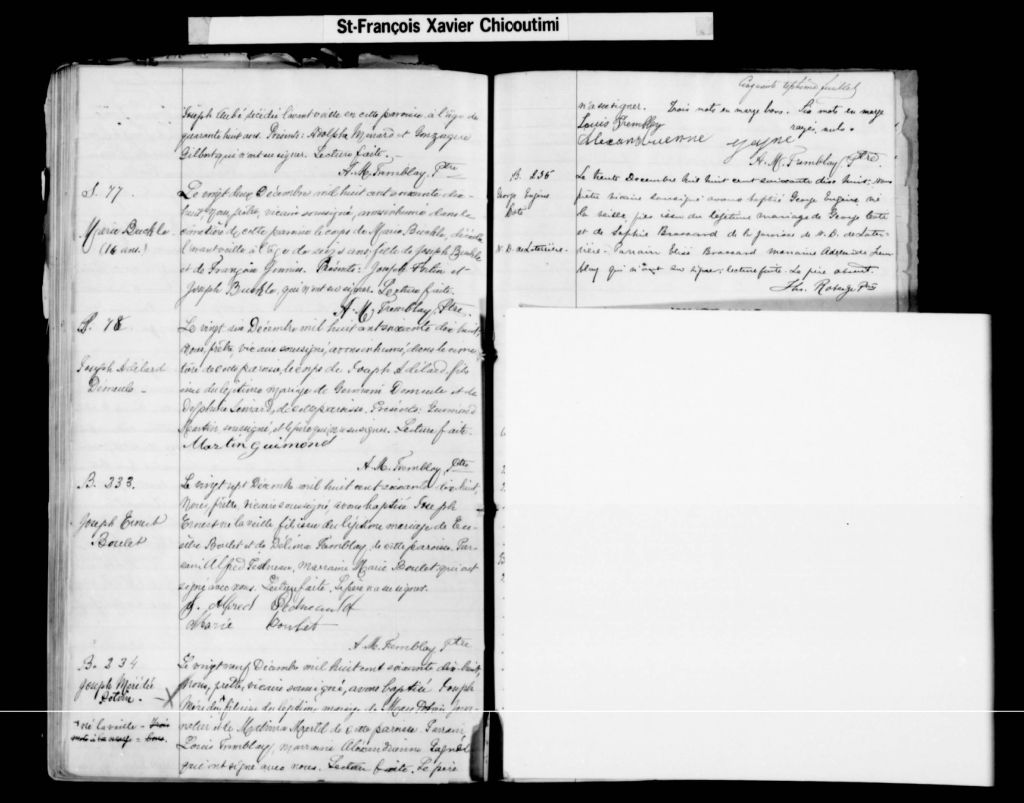 St-François Xavier Chicoutimi
Joseph Aubé décédé l'avant veille en cette paroisse à l'âge de
quarante huit ans. Présents: Adolphe Ménard et Gonzague
qui n'ont su signer. Lecture faite.
A. M. Tremblay, Ptre
S. 77
Marie Buckle
(16 ans)
Le vingt Décembre mil huit cent soixante dix
huit, Nous, prêtre, vicaire soussigné, avons inhumé dans le
cimetière de cette paroisse le corps de Marie Buckle, décédée
l'avant veille à l'âge de seize ans fille de Joseph Buckle
et de Françoise. Présents: Joseph Fortin et
Joseph Buckle, qui n'ont su signer. Lecture faite.
A. M. Tremblay, Ptre
S. 78
Joseph Adélard
Demeule
Le vingt six Décembre mil huit cent soixante dix huit,
Nous, prêtre, vicaire soussigné, avons inhumé, dans le cime-
tière de cette paroisse, le corps de Joseph Adélard, fils
du légitime mariage de Germain Demeule et de
Delphine Simard, de cette paroisse. Présents: Guimond
Martin soussigné, et le père qui n'a su signer. Lecture faite.
Martin Guimond
A. M. Tremblay Ptre
B. 233.
Joseph Ernest
Boulet
Le vingt sept Décembre mil huit cent soixante dix huit,
Nous, prêtre, vicaire soussigné, avons baptisé Joseph
Ernest né la veille fils issu du légitime mariage de Eu-
Boulet et de Délima Tremblay de cette paroisse. Par-
rain Alfred, Marraine Marie Boulet qui ont
signé avec nous. Lecture faite. Le père n'a su signer.
J. Alfred
Marie Boulet
A. M. Tremblay Ptre
B. 234
Joseph Méridé
Potvin.
né la veille
Le vingt neuf Décembre mil huit cent soixante dix huit,
Nous, prêtre, vicaire soussigné, avons baptisé Joseph
fils issu du légitime mariage de Potvin jour-
nalier et de de cette paroisse. Parrain
Louis Tremblay, marraine Alexandrienne Gagné
qui ont signé avec nous. Lecture faite. Le père
Cinquante septième feuillet
n'a su signer. Trois mots en marge bons. Six mots en marge
rayés, nuls.
Louis Tremblay
Alexandrienne Gagné
A. M. Tremblay Ptre
B. 235
George Eugène
Coté
N. D. de Laterrière.
Le trente Decembre mil huit cent soixante dix huit, Nous
prêtre vicaire soussigné avons baptisé George Eugène, né
la veille, fils issu du légitime mariage de George Coté
et de Sophie Brassard de la paroisse de N. D. de Later-
rière. Parrain Elisé Brassard marraine Adelaide Trem-
blay qui n'ont su signer. lecture faite. Le père absent.
Ths. Roberge Ptre